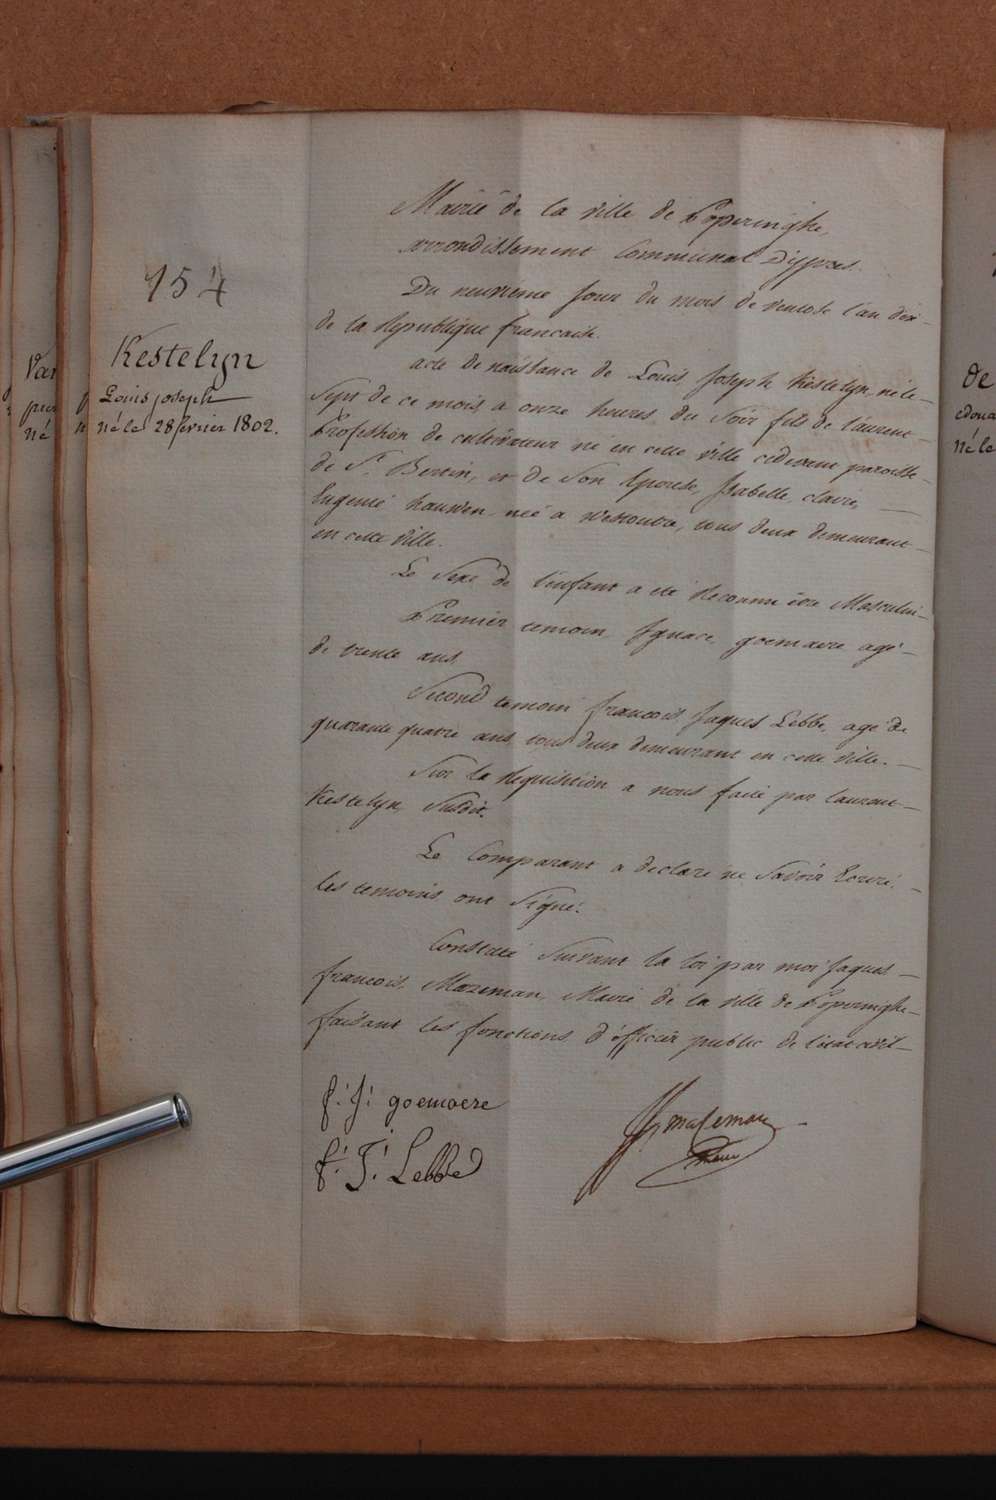 154
Kestelyn
Louis joseph
né le 28 fevrier 1802.
Mairie de la ville de Poperinghe,
arrondissement Communal D'ijpres.
Du neuvieme jour du mois de ventose l'an dix
de la Republique francaise.
acte de naissance de Louis Joseph Kestelyn né le
Sept de ce mois a onze heures du Soir fils de laurent
Profession de cultivateur né en cette ville cidevant paroisse
de St. Bertin, et de Son Epouse, Isabelle, claire,
Eugenié née a Westoutre, tous deux demeurant
en cette ville.
Le Sexe de l'enfant a eté Reconnu être Masculin
Premier temoin Ignace goemaere agé
de trente ans.
Second temoin francois Jaques Lebbe, agé de
quarante quatre ans tous deux demeurant en cette ville.
Sur la Requisition a nous faite par laurent
Kestelyn, Susdit.
Le Comparant a declaré ne Savoir Ecrire,
les temoins ont Signé.
Constaté Suivant la loi par moi Jaques
francois Mazeman, Maire de la ville de Poperinghe
faisant les fonctions d'officier public de l'état civil
f: J: goemaere
f: J: Lebbe
JF mazeman
maire
Van
né
de
edoua
Né le